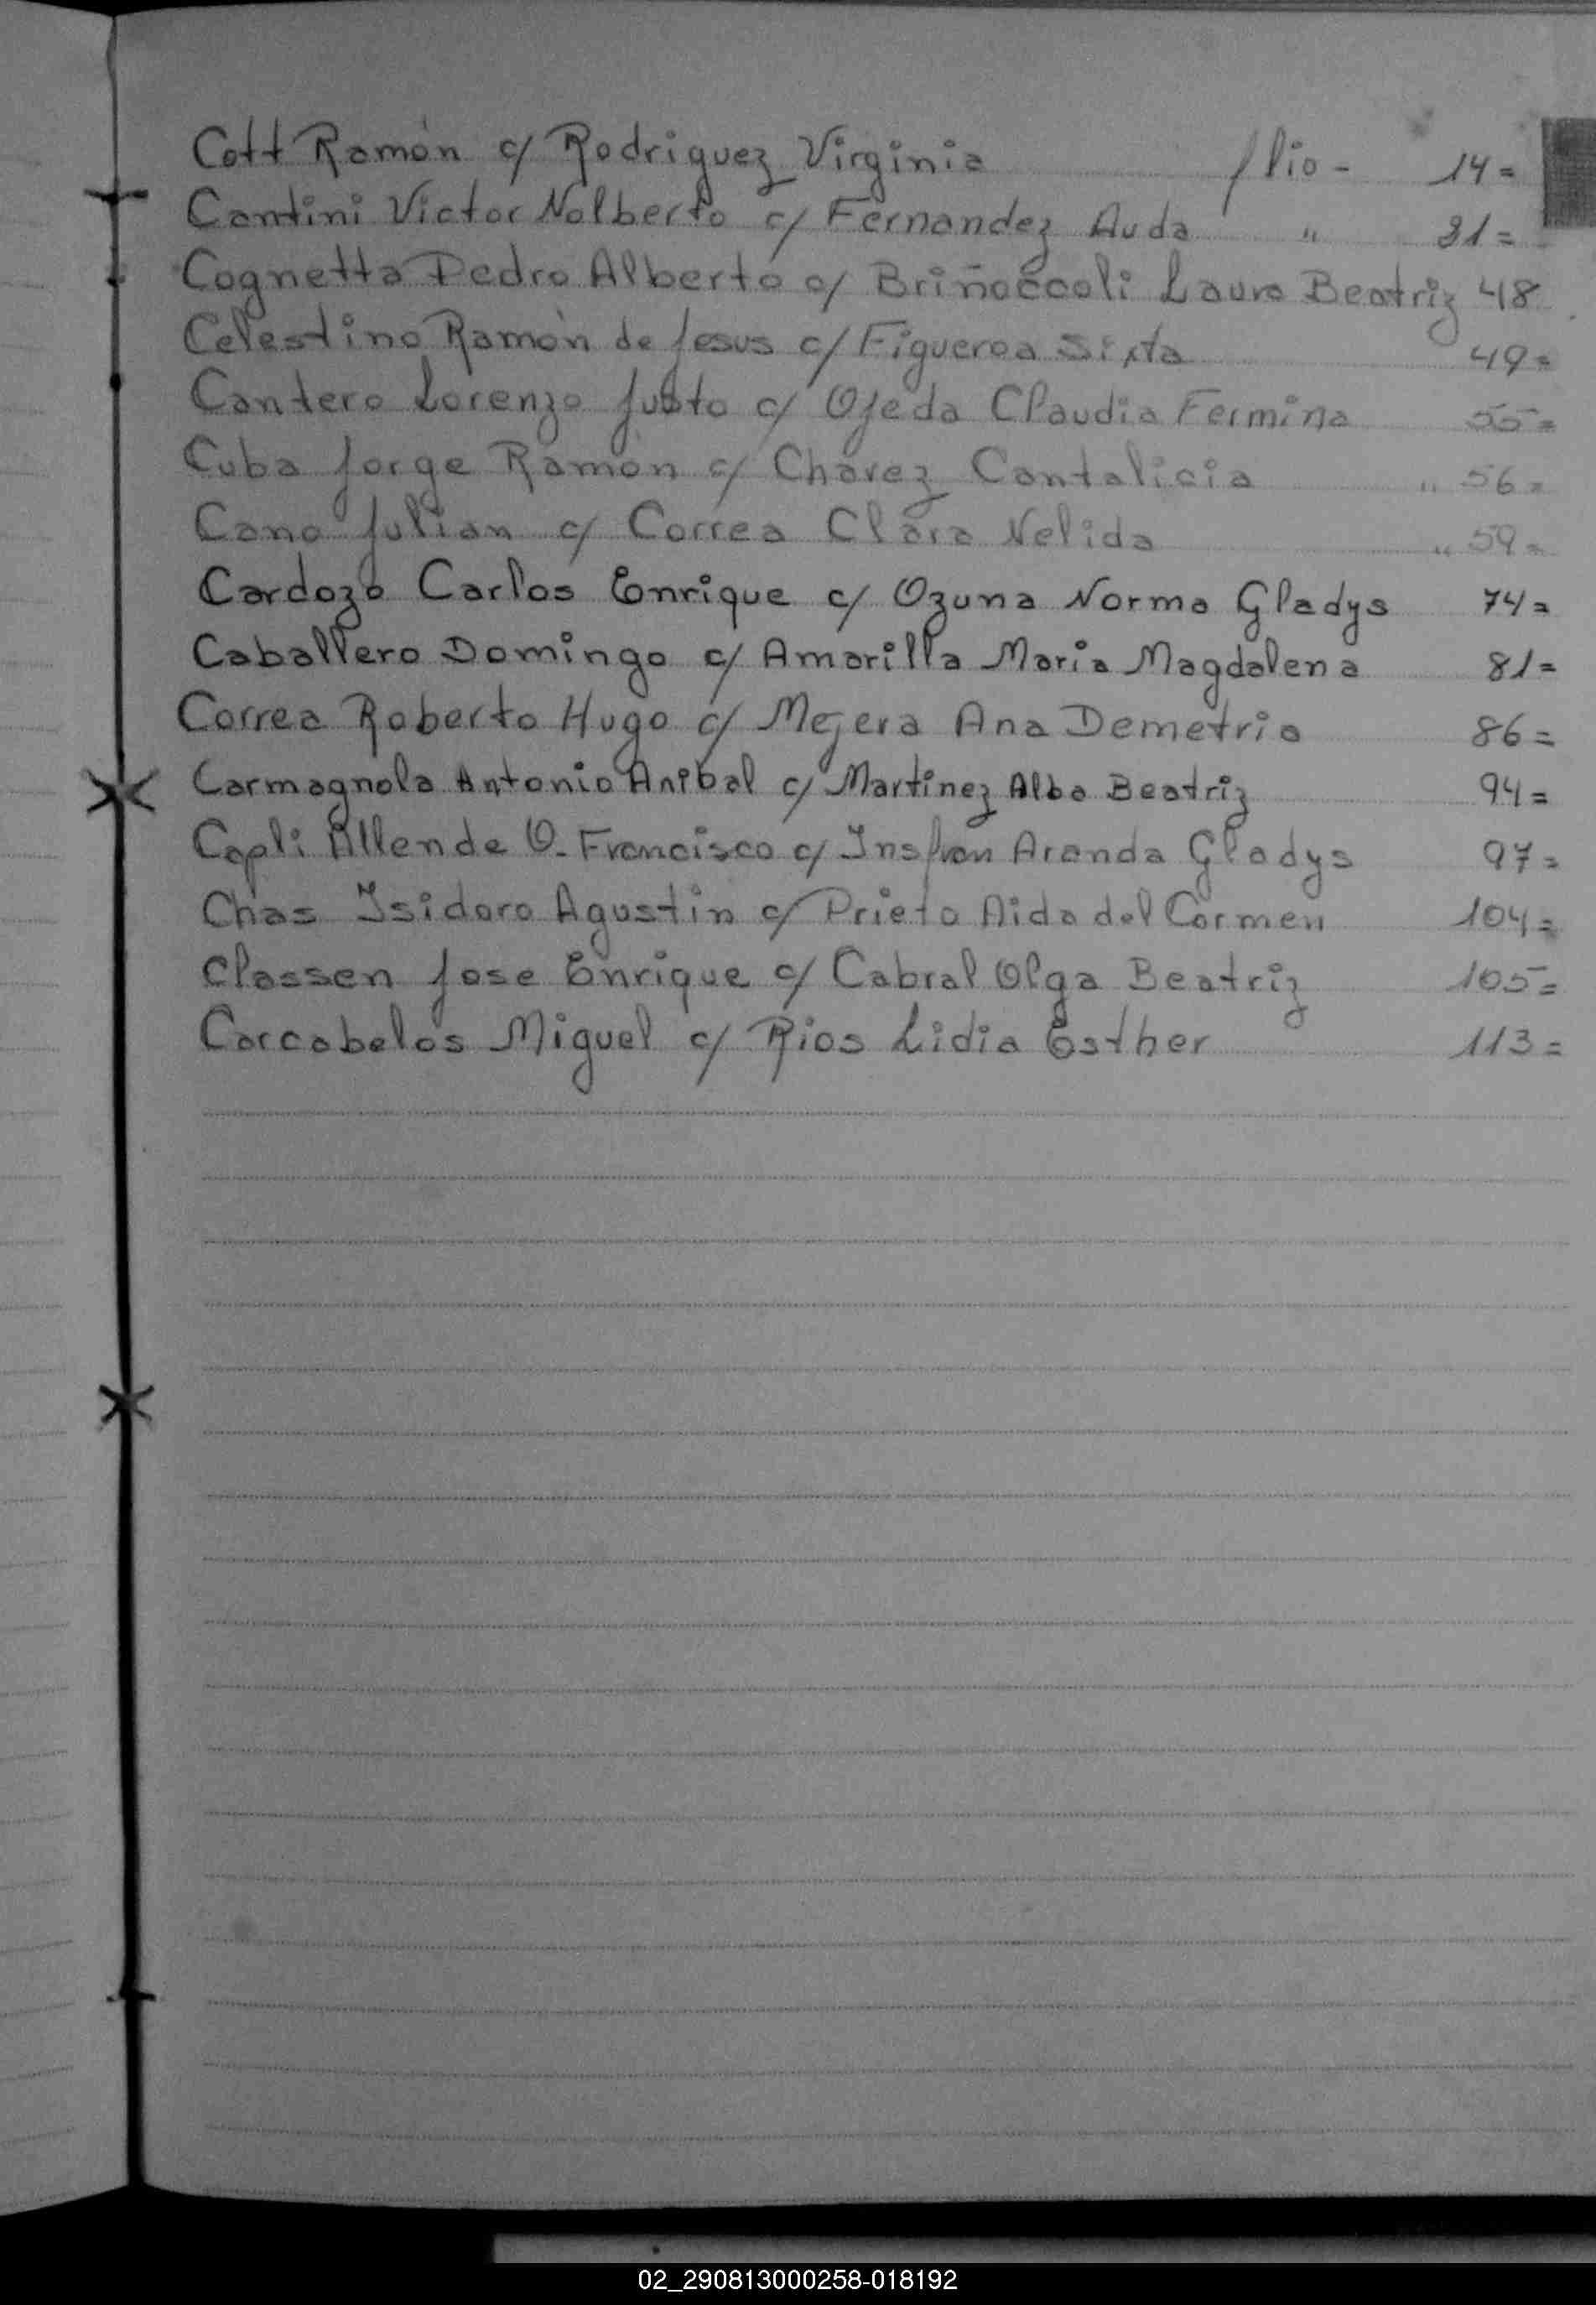 Cott Ramón c/ Rodriguez Virginia flio - 14=
Contini Victor Nolberto c/ Fernandez Auda " 31=
Cognetta Pedro Alberto c/ Briñoccoli Laura Beatriz 48
Celestino Ramón de Jesus c/ Figueroa Sixta 49=
Cantero Lorenzo Justo c/ Ojeda Claudia Fermina 55=
Cuba Jorge Ramón c/ Chavez Cantalicia " 56=
Cano Julian c/ Correa Clara Nelida " 59=
Cardozo Carlos Enrique c/ Ozuna Norma Gladys 74=
Caballero Domingo c/ Amarilla Maria Magdalena 81=
Correa Roberto Hugo c/ Mejera Ana Demetria 86=
Carmagnola Antonio Anibal c/ Martinez Alba Beatriz 94=
Capli Allende O. Francisco c/ Insfran Aranda Gladys 97=
Chas Isidoro Agustin c/ Prieto Aida del Carmen 104=
Classen Jose Enrique c/ Cabral Olga Beatriz 105=
Carcabelos Miguel c/ Rios Lidia Esther 113=
02_290813000258-018192